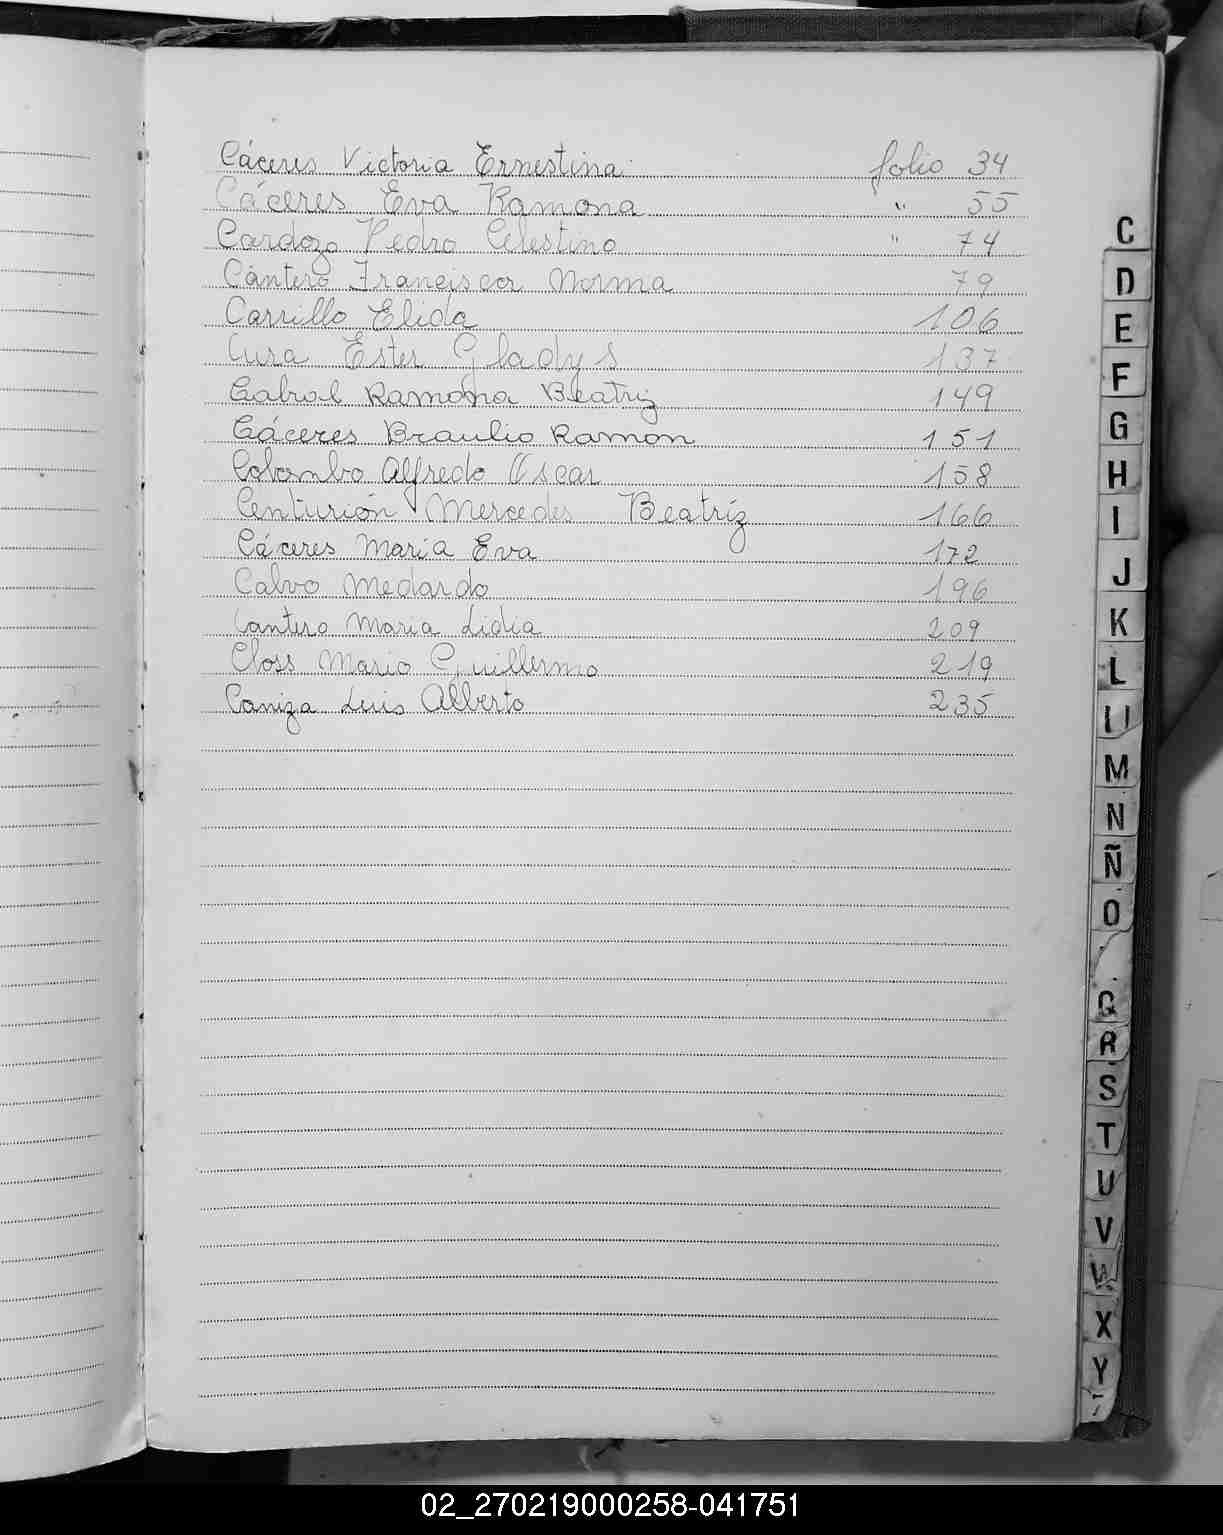 Cáceres Victoria Ernestina folio 34
Cáceres Eva Ramona " 55
Cardozo Pedro Celestino " 74
Cantero Norma 79
Carrillo Elida 106
Cura Ester Gladys 137
Cabral Ramona Beatriz 149
Cáceres Braulio Ramon 151
Colombo Alfredo Oscar 158
Centurión Mercedes Beatríz 166
Cáceres María Eva 172
Calvo Medardo 196
Cantero Maria Lidia 209
Closs Mario Guillermo 219
Caniza Luis Alberto 235
C
D
E
F
G
H
I
J
K
L
M
N
Ñ
O
Q
R
S
T
U
V
W
X
Y
02_270219000258-041751